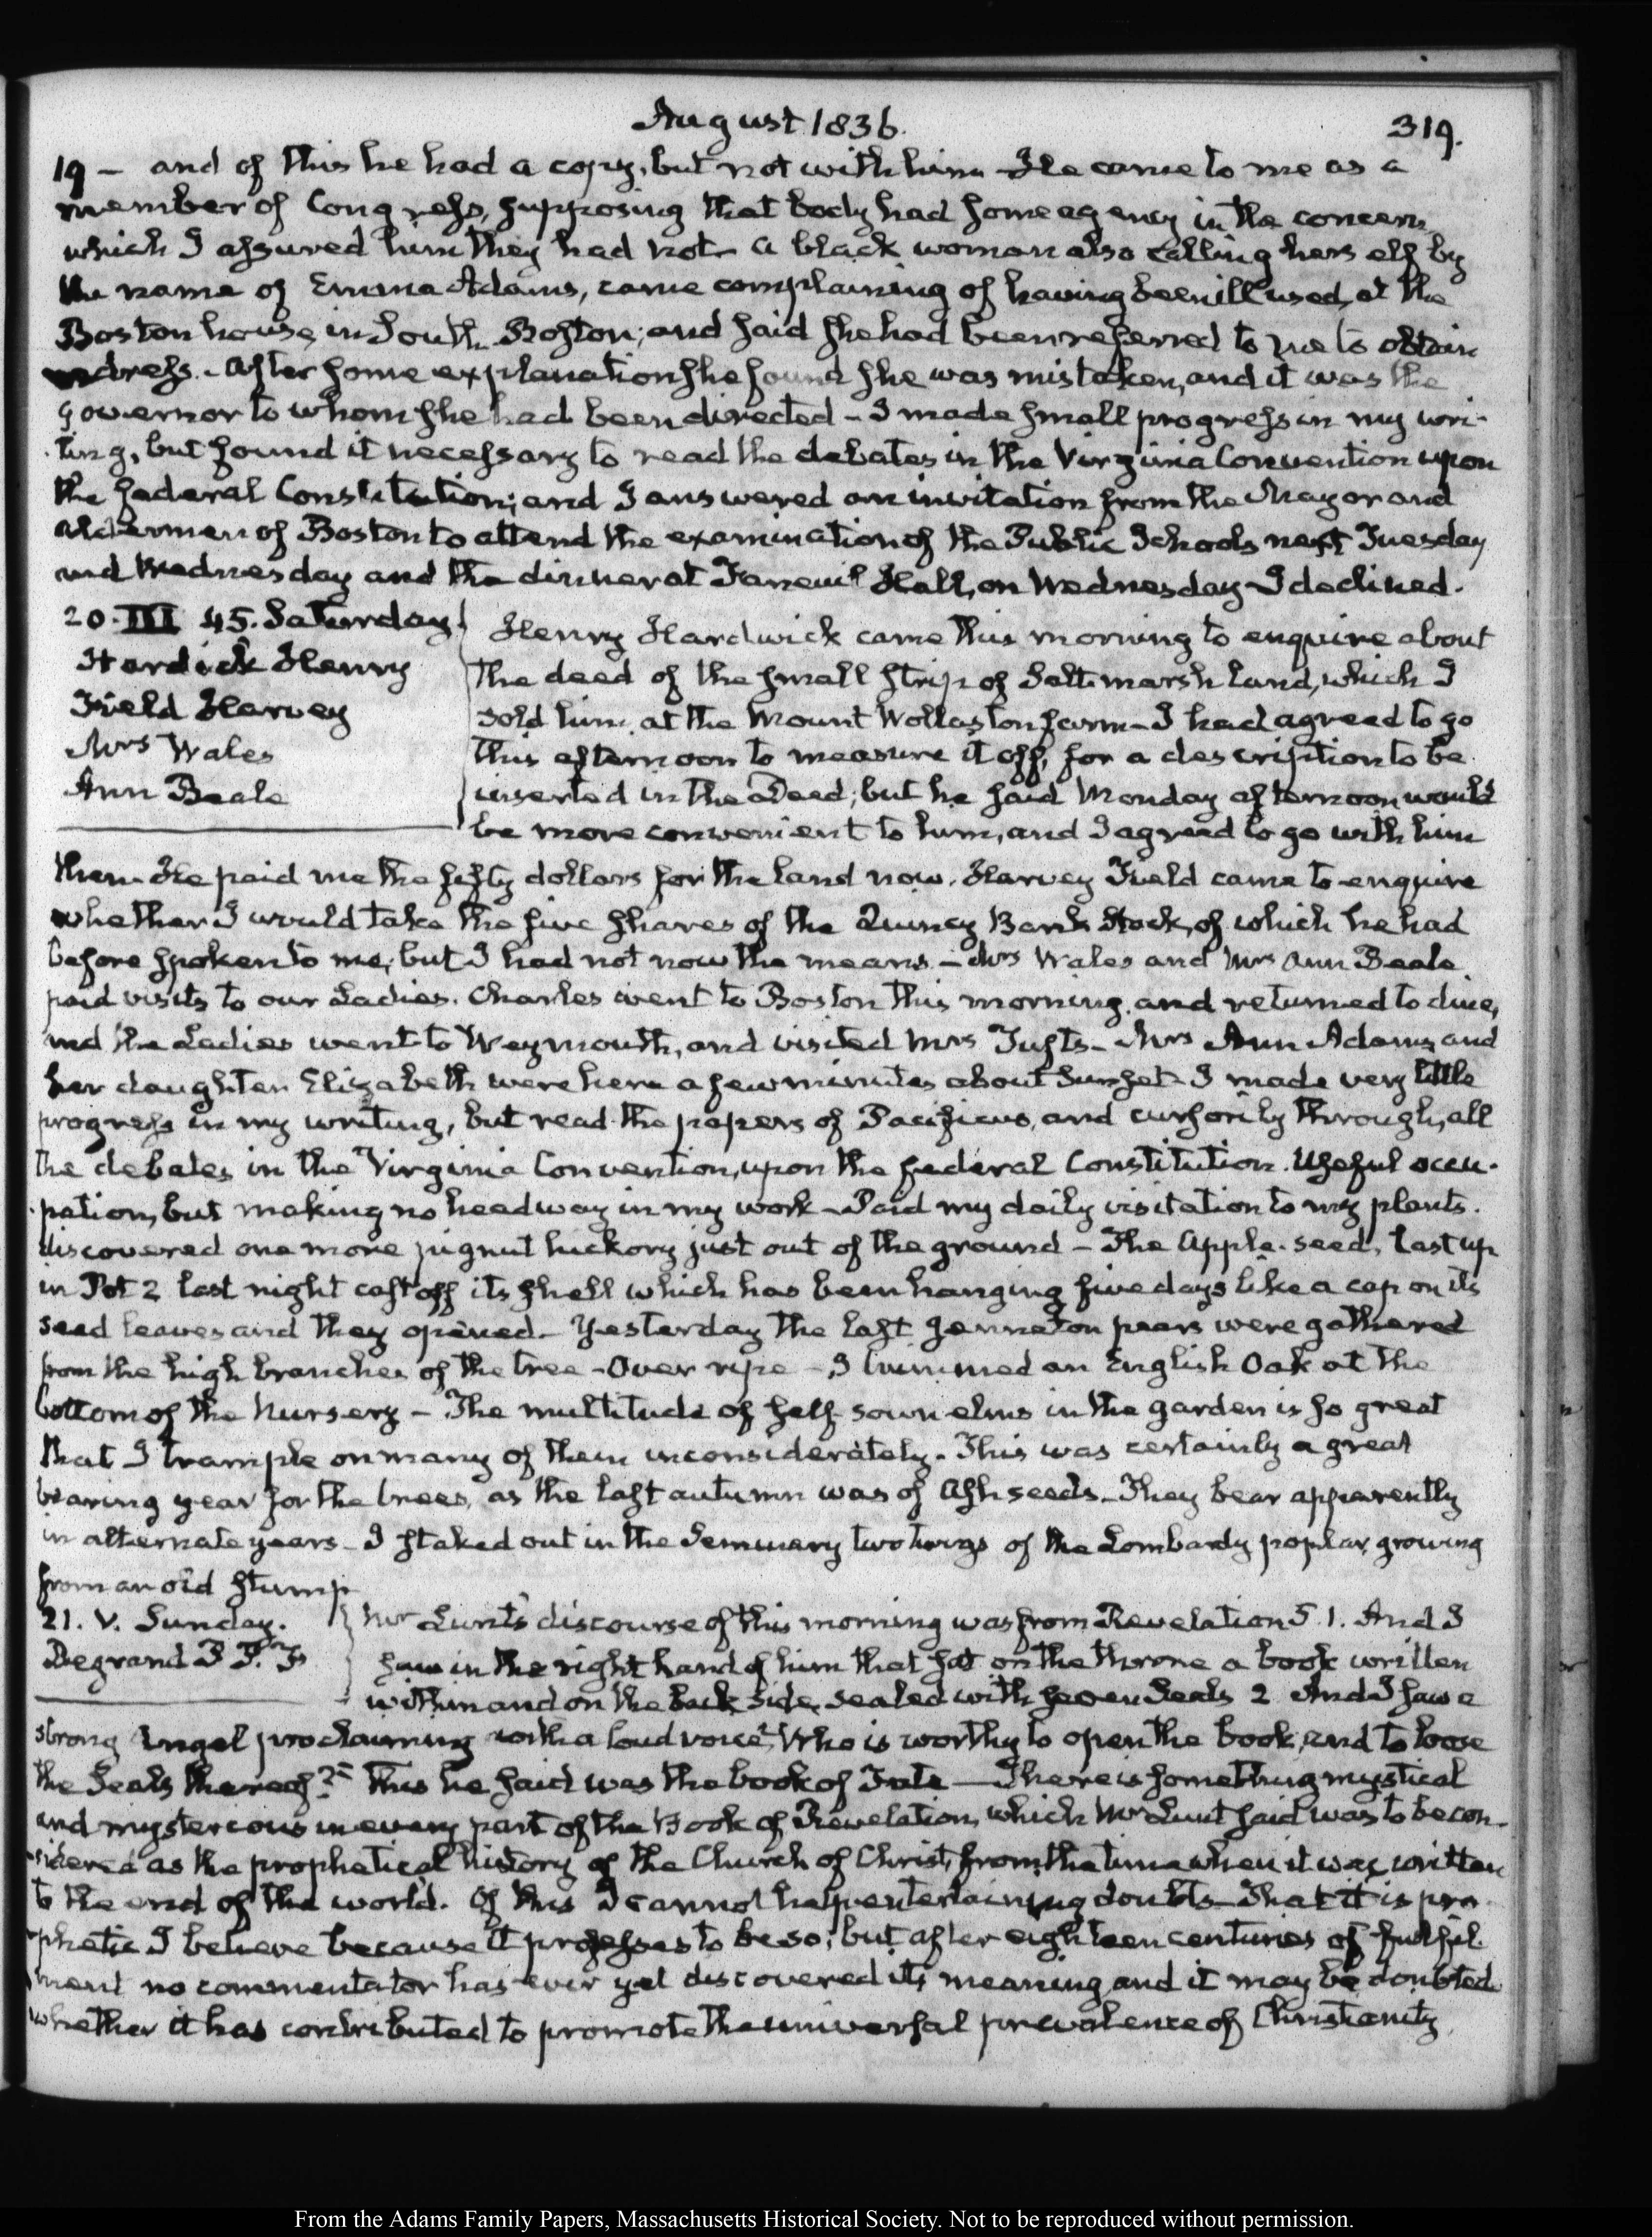 August 1836.
319.
19 — and of this he had a copy, but not with him — He came to me as a
member of Congress, supposing that body had some agency in the concern,
which I assured him they had not — a black woman also calling herself by
the name of Emma Adams, came complaining of having been ill used, at the
Boston house, in South Boston; and said she had been referred to me to obtain
redress. — After some explanation she found she was mistaken, and it was the
Governor to whom she had been directed — I made small progress in my wri-
-ting, but found it necessary to read the debates in the Virginia Convention upon
the federal Constitution; and I answered an invitation from the Mayor and
Aldermen of Boston to attend the examination of the Public Schools next Tuesday
and Wednesday and the dinner at Faneuil Hall, on Wednesday — I declined.
20. III 45. Saturday
Hardick Henry
Field Harvey
Mrs Wales
Ann Beale
Henry Hardwick came this morning to enquire about
the deed of the small strip of Salt marsh land, which I
sold him, at the Mount Wollaston farm — I had agreed to go
this afternoon to measure it off, for a description to be
inserted in the Deed; but he said Monday afternoon would
be more convenient to him, and I agreed to go with him
then. He paid me the fifty dollars for the land now. Harvey Field came to enquire
whether I would take the five shares of the Quincy Bank Stock, of which he had
before spoken to me; but I had not now the means — Mrs Wales and Mrs Ann Beale
paid visits to our Ladies. Charles went to Boston this morning, and returned to dine,
and the Ladies went to Weymouth, and visited Mrs Tufts — Mrs Ann Adams and
her daughter Elizabeth were here a few minutes about Sunset — I made very little
progress in my writing, but read the papers of Pacificus, and cursorily through, all
the debates in the Virginia Convention, upon the federal Constitution. Useful occu-
-pation, but making no headway in my work — Paid my daily visitation to my plants.
discovered one more pignut hickory just out of the ground — The Apple-seed, last up
in Pot 2 last night cast off its shell which has been hanging five days like a cap on its
seed leaves and they opened — Yesterday the last Jenneton pears were gathered
from the high branches of the tree — Over ripe — I trimmed an English Oak at the
bottom of the Nursery — The multitude of self-sown elms in the garden is so great
that I trample on many of them inconsiderately. This was certainly a great
bearing year for the trees, as the last autumn was of Ash seeds — They bear apparently
in alternate years — I staked out in the Seminary two twigs of the Lombardy poplar, growing
from an old stump
21. V. Sunday.
Degrand P. P. F.
Mr Lunt's discourse of this morning was from Revelation 5. 1. And I
saw in the right hand of him that sat on the throne a book written
within and on the back side, sealed with seven Seals 2 And I saw a
strong Angel proclaiming with a loud voice, Who is worthy to open the book, and to loose
the Seals thereof? — This he said was the book of Fate — There is something mystical
and mysterious in every part of the Book of Revelation, which Mr Lunt said was to be con-
-sidered as the prophetical history of the Church of Christ, from the time when it was written
to the end of the world. Of this I cannot help entertaining doubts — That it is pro-
-phetic I believe because it professes to be so; but after eighteen centuries of fulfil-
-ment no commentator has ever yet discovered its meaning and it may be doubted
whether it has contributed to promote the universal prevalence of Christianity
From the Adams Family Papers, Massachusetts Historical Society. Not to be reproduced without permission.